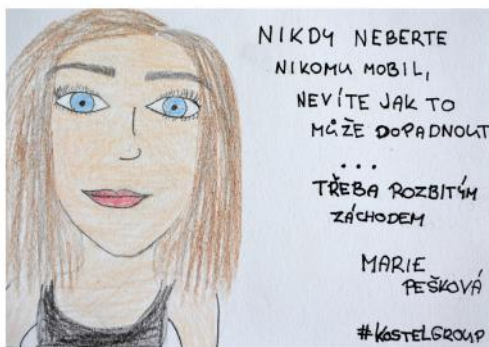 NIKDY NEBERTE
NIKOMU MOBIL,
NEVÍTE JAK TO
MŮŽE DOPADNOUT
...
TŘEBA ROZBITÝM
ZÁCHODEM
MARIE
PEŠKOVÁ
#KOSTELGROUP